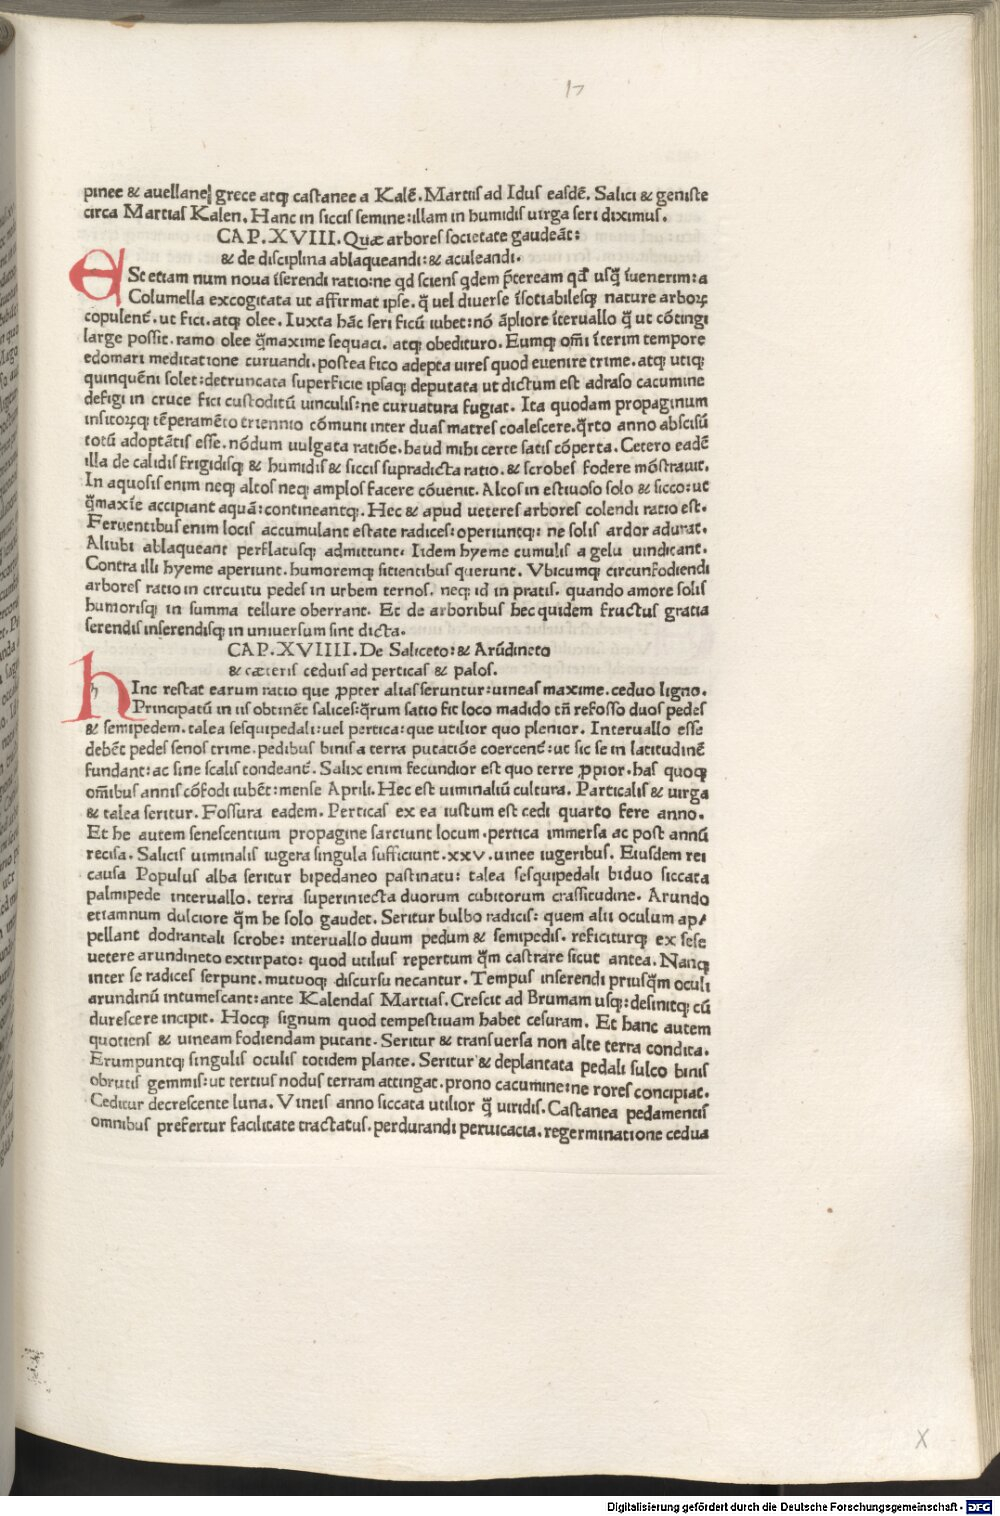 17
pinee & auellane grece atqꝫ castanee a Kalē. Martiis ad Idus easdē. Salici & geniste
circa Martias Kalen. Hanc in siccis semine: illam in humidis uirga seri diximus.
CAP. XVIII. Quæ arbores societate gaudeāt:
& de disciplina ablaqueandi: & aculeandi.
ESt etiam num noua īserendi ratio: ne qd sciens qdem p̄teream qđ usq̄ īuenerim: a
Columella excogitata ut affirmat ipse. q̄ uel diuerse īsotiabilesqꝫ nature arborꝝ
copulent̄. ut fici. atqꝫ olee. Iuxta hāc seri ficū iubet: nō āpliore īteruallo q̄ ut cōtingi
large possit. ramo olee q̄maxime sequaci. atqꝫ obedituro. Eumqꝫ om̄i īterim tempore
edomari meditatione curuandi. postea fico adepta uires quod euenire trime. atqꝫ utiqꝫ
quinquēni solet: detruncata superficie ipsaqꝫ deputata ut dictum est adraso cacumine
defigi in cruce fici custoditū uinculis: ne curuatura fugiat. Ita quodam propaginum
insitorꝝqꝫ tēperamēto triennio cōmuni inter duas matres coalescere. q̄rto anno abscisū
totū adoptātis esse. nōdum uulgata ratiōe. haud mihi certe satis cōperta. Cetero eadē
illa de calidis frigidisqꝫ & humidis & siccis supradicta ratio. & scrobes fodere mōstrauit.
In aquosis enim neqꝫ altos neqꝫ amplos facere cōuenit. Altos in estiuoso solo & sicco: ut
q̄maxīe accipiant aquā: contineantqꝫ. Hec & apud ueteres arbores colendi ratio est.
Feruentibus enim locis accumulant estate radices: operiuntqꝫ: ne solis ardor adurat.
Aliubi ablaqueant perflatusqꝫ admittunt. Iidem hyeme cumulis a gelu uindicant.
Contra illi hyeme aperiunt. humoremqꝫ sitientibus querunt. Vbicumqꝫ circunfodiendi
arbores ratio in circuitu pedes in urbem ternos. neqꝫ id in pratis. quando amore solis
humorisqꝫ in summa tellure oberrant. Et de arboribus hec quidem fructus gratia
serendis inserendisqꝫ in uniuersum sint dicta.
CAP. XVIIII. De Saliceto: & Arūdineto
& cæteris ceduis ad perticas & palos.
hInc restat earum ratio que ꝓpter alias seruntur: uineas maxime. ceduo ligno.
Principatū in iis obtinēt salices: q̄rum satio fit loco madido tn̄ refosso duos pedes
& semipedem. talea sesquipedali: uel pertica: que utilior quo plenior. Interuallo esse
debēt pedes senos trime. pedibus binis a terra putatiōe coercent̄: ut sic se in latitudinē
fundant: ac sine scalis tondeant̄. Salix enim fecundior est quo terre ꝓpior. has quoqꝫ
om̄ibus annis cōfodi iubēt: mense Aprili. Hec est uiminaliū cultura. Particalis & uirga
& talea seritur. Fossura eadem. Perticas ex ea iustum est cedi quarto fere anno.
Et he autem senescentium propagine sarciunt locum. pertica immersa ac post annū
recisa. Salicis uiminalis iugera singula sufficiunt. xxv. uinee iugeribus. Eiusdem rei
causa Populus alba seritur bipedaneo pastinatu: talea sesquipedali biduo siccata
palmipede interuallo. terra superiniecta duorum cubitorum crassitudine. Arundo
etiamnum dulciore q̄m he solo gaudet. Seritur bulbo radicis: quem alii oculum ap⸗
pellant dodrantali scrobe: interuallo duum pedum & semipedis. reficiturqꝫ ex sese
uetere arundineto extirpato: quod utilius repertum q̄m castrare sicut antea. Nanqꝫ
inter se radices serpunt. mutuoqꝫ discursu necantur. Tempus inserendi priusq̄m oculi
arundinū intumescant: ante Kalendas Martias. Crescit ad Brumam usqꝫ: desinitqꝫ cū
durescere incipit. Hocqꝫ signum quod tempestiuam habet cesuram. Et hanc autem
quotiens & uineam fodiendam putant. Seritur & transuersa non alte terra condita.
Erumpuntqꝫ singulis oculis totidem plante. Seritur & deplantata pedali sulco binis
obrutis gemmis: ut tertius nodus terram attingat. prono cacumine: ne rores concipiat.
Ceditur decrescente luna. Vineis anno siccata utilior q̄ uiridis. Castanea pedamentis
omnibus prefertur facilitate tractatus. perdurandi peruicacia. regerminatione cedua
X
Digitalisierung gefördert durch die Deutsche Forschungsgemeinschaft - DFG